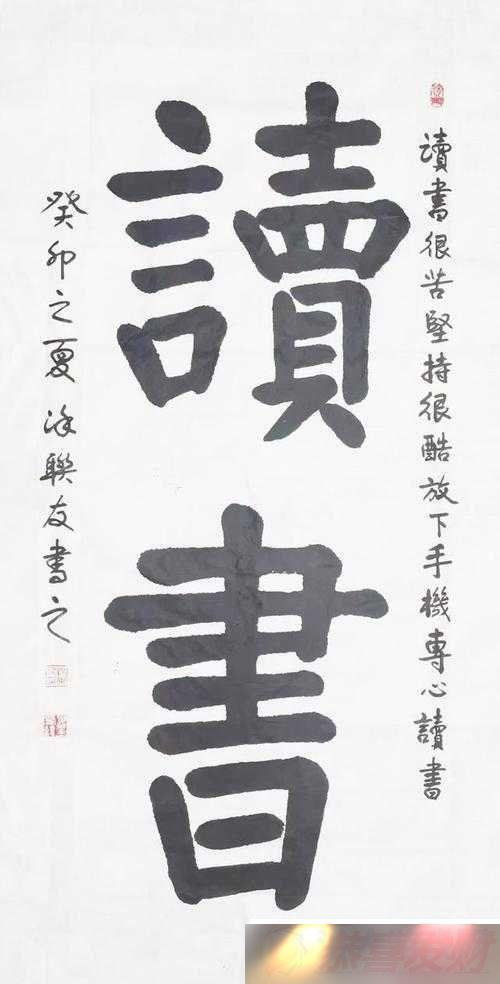 讀書很苦堅持很酷放下手機專心讀書
讀書
癸卯之夏涂聯友書之
恭喜发财